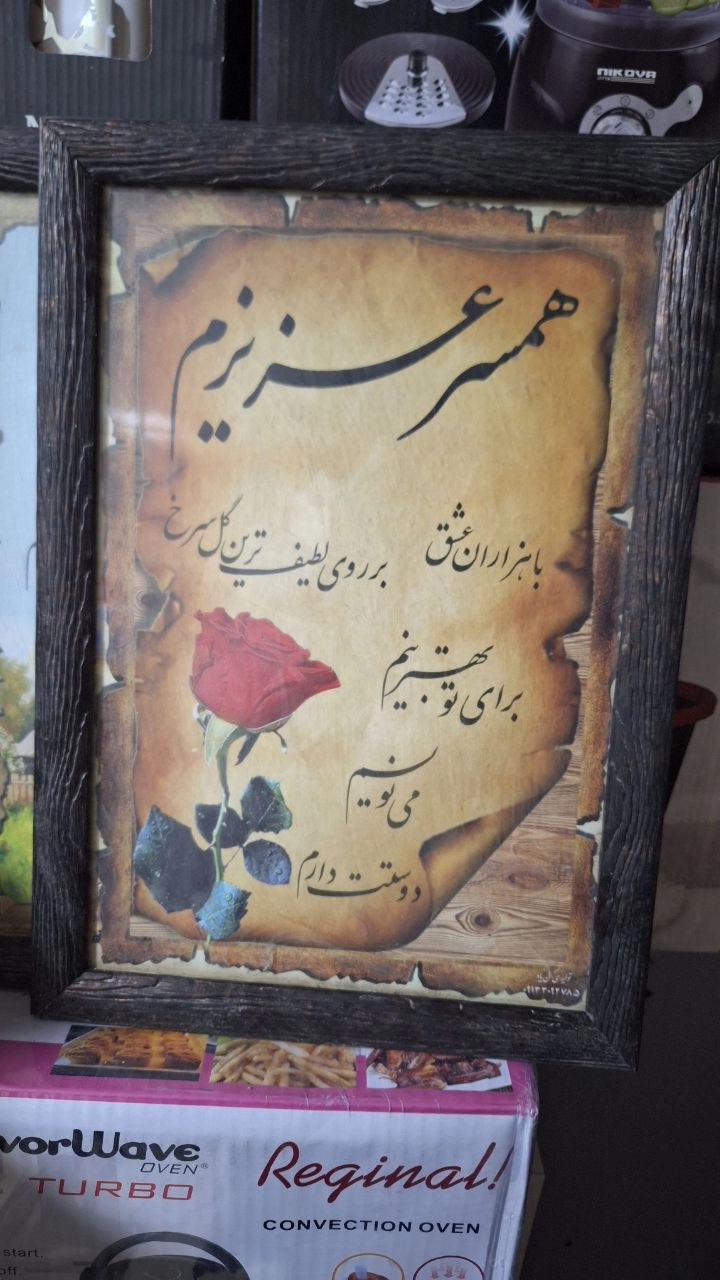 NIKOVA
همسر عزیزم
با هزاران عشق بر روی لطیف ترین گل سرخ
برای تو بهترینم
می نویسم
دوستت دارم
vorWave
OVEN®
TURBO
Reginal!
CONVECTION OVEN
start.
off.